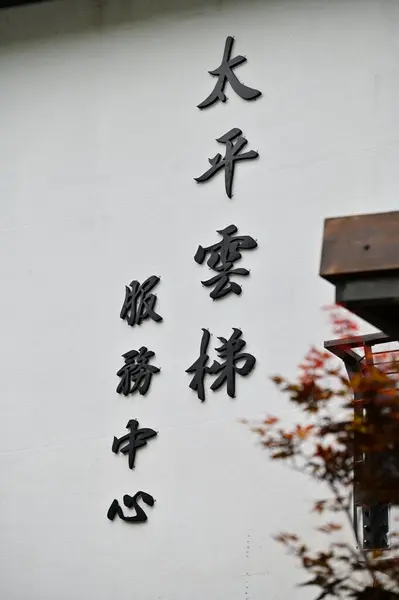 太平雲梯
服務中心